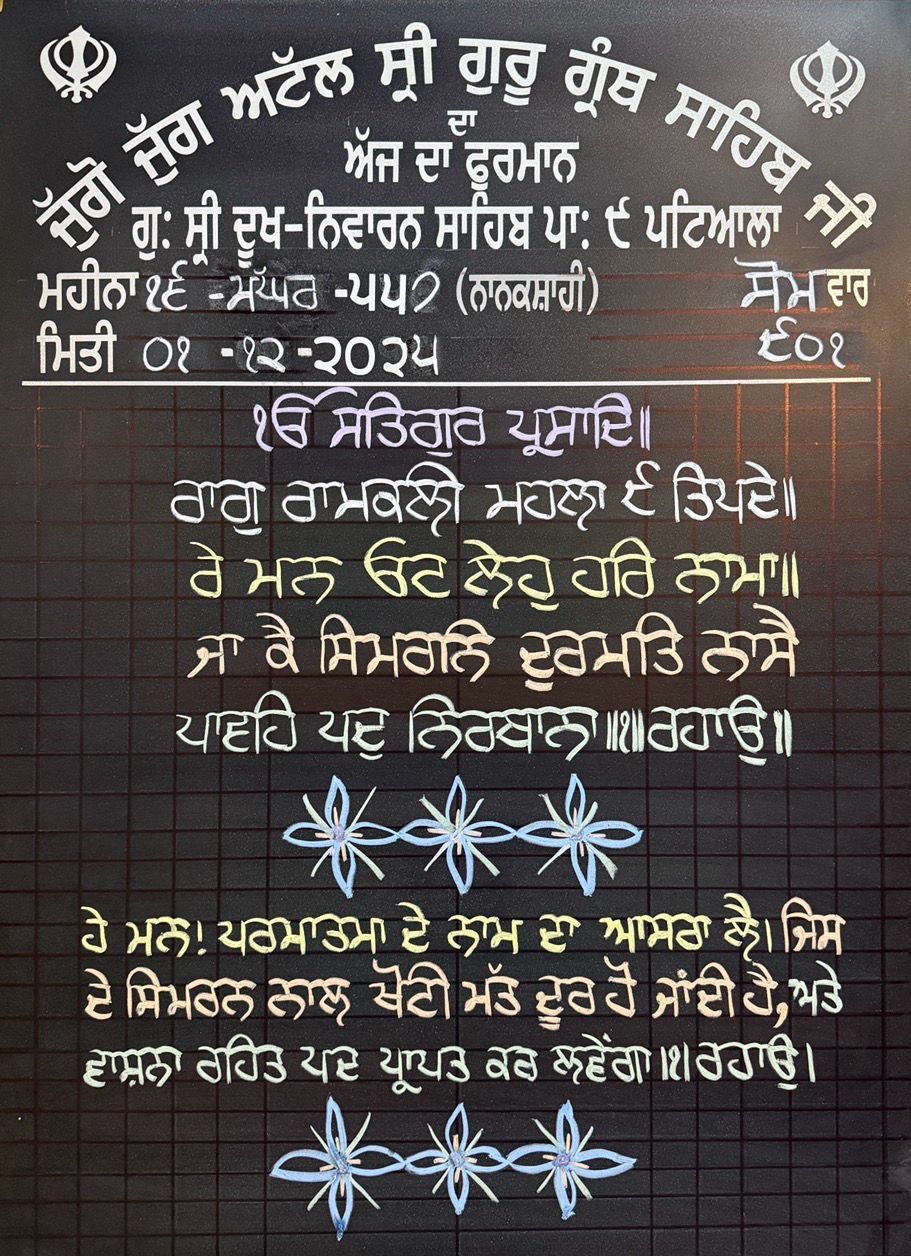 ਜੁੱਗੋ ਜੁੱਗ ਅਟੱਲ ਸ੍ਰੀ ਗੁਰੂ ਗ੍ਰੰਥ ਸਾਹਿਬ ਜੀ
ਦਾ
ਅੱਜ ਦਾ ਫੁਰਮਾਨ
ਗੁ: ਸ੍ਰੀ ਦੂਖ-ਨਿਵਾਰਨ ਸਾਹਿਬ ਪਾ: ੯ ਪਟਿਆਲਾ
ਮਹੀਨਾ ੧੬ -ਮੱਘਰ -੫੫੭ (ਨਾਨਕਸ਼ਾਹੀ) ਸੋਮ ਵਾਰ
ਮਿਤੀ ੦੧ -੧੨ -੨੦੨੫ ੯੦੧
ੴ ਸਤਿਗੁਰ ਪ੍ਰਸਾਦਿ॥
ਰਾਗੁ ਰਾਮਕਲੀ ਮਹਲਾ ੯ ਤਿਪਦੇ॥
ਰੇ ਮਨ ਓਟ ਲੇਹੁ ਹਰਿ ਨਾਮਾ॥
ਜਾ ਕੈ ਸਿਮਰਨਿ ਦੁਰਮਤਿ ਨਾਸੈ
ਪਾਵਹਿ ਪਦੁ ਨਿਰਬਾਨਾ॥੧॥ਰਹਾਉ॥
ਹੇ ਮਨ! ਪਰਮਾਤਮਾ ਦੇ ਨਾਮ ਦਾ ਆਸਰਾ ਲੈ। ਜਿਸ
ਦੇ ਸਿਮਰਨ ਨਾਲ ਖੋਟੀ ਮੱਤ ਦੂਰ ਹੋ ਜਾਂਦੀ ਹੈ, ਅਤੇ
ਵਾਸ਼ਨਾ ਰਹਿਤ ਪਦ ਪ੍ਰਾਪਤ ਕਰ ਲਵੇਂਗਾ॥੧।ਰਹਾਉ।